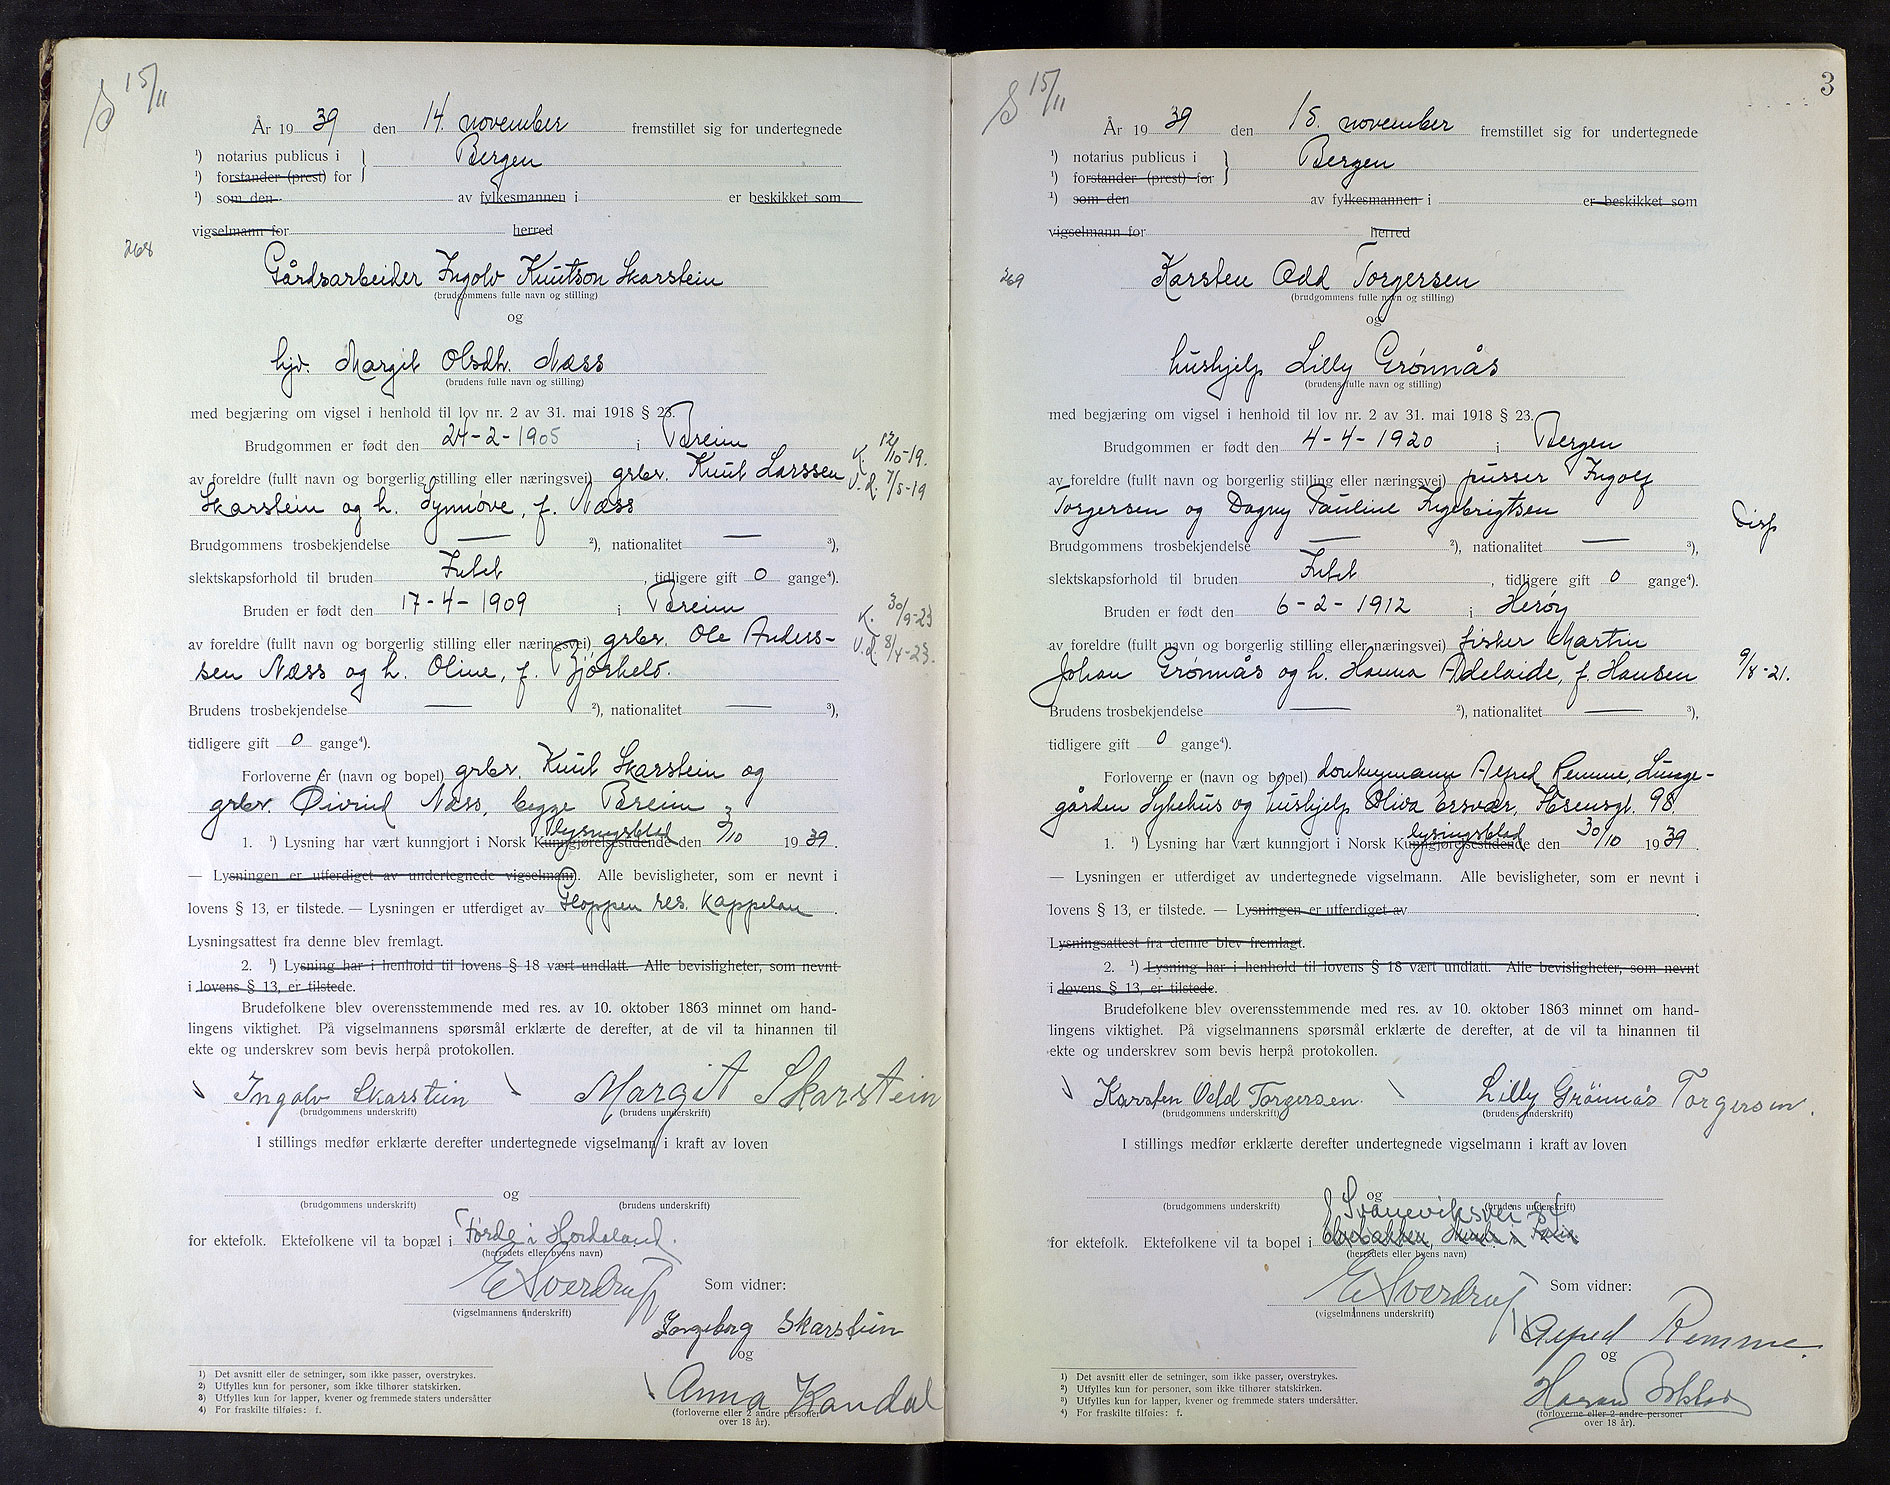 S 15/11
År 19 39 den 14. november fremstillet sig for undertegnede
1) notarius publicus i } Bergen
1) forstander (prest) for
1) som den av fylkesmannen i er beskikket som
vigselmann for herred
268
Gårdsarbeider Ingolv Knutson Skarstein
(brudgommens fulle navn og stilling)
og
hjv. Margit Olsdtr. Næss
(brudens fulle navn og stilling)
med begjæring om vigsel i henhold til lov nr. 2 av 31. mai 1918 § 23.
Brudgommen er født den 24-2-1905 i Breim
K. 12/10-19.
av foreldre (fullt navn og borgerlig stilling eller næringsvei) grbr. Knut Larssen
V.A. 7/5-19
Skarstein og h. Synnøve, f. Næss
Brudgommens trosbekjendelse — 2), nationalitet — 3),
slektskapsforhold til bruden Intet, tidligere gift 0 gange4).
Bruden er født den 17-4-1909 i Breim
K. 30/9-23
av foreldre (fullt navn og borgerlig stilling eller næringsvei) grbr. Ole Anders-
V.A. 8/4-23.
sen Næss og h. Oline, f. Bjørhelo.
Brudens trosbekjendelse — 2), nationalitet — 3),
tidligere gift 0 gange4).
Forloverne er (navn og bopel) grbr. Knut Skarstein og
grbr. Øivind Næss, begge Breim
1. 1) Lysning har vært kunngjort i Norsk Kunngjørelsestidende lysningsblad den 3/10 1939.
— Lysningen er utferdiget av undertegnede vigselmann. Alle bevisligheter, som er nevnt i
lovens § 13, er tilstede. — Lysningen er utferdiget av Gloppen res. kappelan.
Lysningsattest fra denne blev fremlagt.
2. 1) Lysning har i henhold til lovens § 18 vært undlatt. Alle bevisligheter, som nevnt
i lovens § 13, er tilstede.
Brudefolkene blev overensstemmende med res. av 10. oktober 1863 minnet om hand-
lingens viktighet. På vigselmannens spørsmål erklærte de derefter, at de vil ta hinannen til
ekte og underskrev som bevis herpå protokollen.
Ingolv Skarstein Margit Skarstein
(brudgommens underskrift) (brudens underskrift)
I stillings medfør erklærte derefter undertegnede vigselmann i kraft av loven
og
(brudgommens underskrift) (brudens underskrift)
for ektefolk. Ektefolkene vil ta bopæl i Førde i Hordaland.
(herredets eller byens navn)
E Sverdrup Som vidner:
(vigselmannens underskrift)
Ingeborg Skarstein
og
Anna Kandal
(forloverne eller 2 andre personer
over 18 år).
1) Det avsnitt eller de setninger, som ikke passer, overstrykes.
2) Utfylles kun for personer, som ikke tilhører statskirken.
3) Utfylles kun for lapper, kvener og fremmede staters undersåtter
4) For fraskilte tilføies: f.
3
S 15/11
År 19 39 den 15. november fremstillet sig for undertegnede
1) notarius publicus i } Bergen
1) forstander (prest) for
1) som den av fylkesmannen i er beskikket som
vigselmann for herred
269
Karsten Odd Torgersen
(brudgommens fulle navn og stilling)
og
hushjelp Lilly Grønnås
(brudens fulle navn og stilling)
med begjæring om vigsel i henhold til lov nr. 2 av 31. mai 1918 § 23.
Brudgommen er født den 4-4-1920 i Bergen
av foreldre (fullt navn og borgerlig stilling eller næringsvei) pusser Ingolf
Torgersen og Dagny Pauline Ingebrigtsen
Disp
Brudgommens trosbekjendelse — 2), nationalitet — 3),
slektskapsforhold til bruden Intet, tidligere gift 0 gange4).
Bruden er født den 6-2-1912 i Herøy
av foreldre (fullt navn og borgerlig stilling eller næringsvei) fisker Martin
Johan Grønnås og h. Hanna Adelaide, f. Hansen
9/8-21.
Brudens trosbekjendelse — 2), nationalitet — 3),
tidligere gift 0 gange4).
Forloverne er (navn og bopel) donkeymann Alfred Remme, Lunge-
gården Sykehus og hushjelp Oliva Ersvær, Ibsensgt. 98
1. 1) Lysning har vært kunngjort i Norsk Kunngjørelsestidende lysingsblad den 30/10 1939.
— Lysningen er utferdiget av undertegnede vigselmann. Alle bevisligheter, som er nevnt i
lovens § 13, er tilstede. — Lysningen er utferdiget av
Lysningsattest fra denne blev fremlagt.
2. 1) Lysning har i henhold til lovens § 18 vært undlatt. Alle bevisligheter, som nevnt
i lovens § 13, er tilstede.
Brudefolkene blev overensstemmende med res. av 10. oktober 1863 minnet om hand-
lingens viktighet. På vigselmannens spørsmål erklærte de derefter, at de vil ta hinannen til
ekte og underskrev som bevis herpå protokollen.
Karsten Odd Torgersen. Lilly Grönnås Torgersen.
(brudgommens underskrift) (brudens underskrift)
I stillings medfør erklærte derefter undertegnede vigselmann i kraft av loven
og
(brudgommens underskrift) (brudens underskrift)
Svaneviksvei
for ektefolk. Ektefolkene vil ta bopel i
(herredets eller byens navn)
E Sverdrup Som vidner:
(vigselmannens underskrift)
Alfred Remme.
og
(forloverne eller 2 andre personer
over 18 år).
1) Det avsnitt eller de setninger, som ikke passer, overstrykes.
2) Utfylles kun for personer, som ikke tilhører statskirken.
3) Utfylles kun for lapper, kvener og fremmede staters undersåtter.
4) For fraskilte tilføies: f.